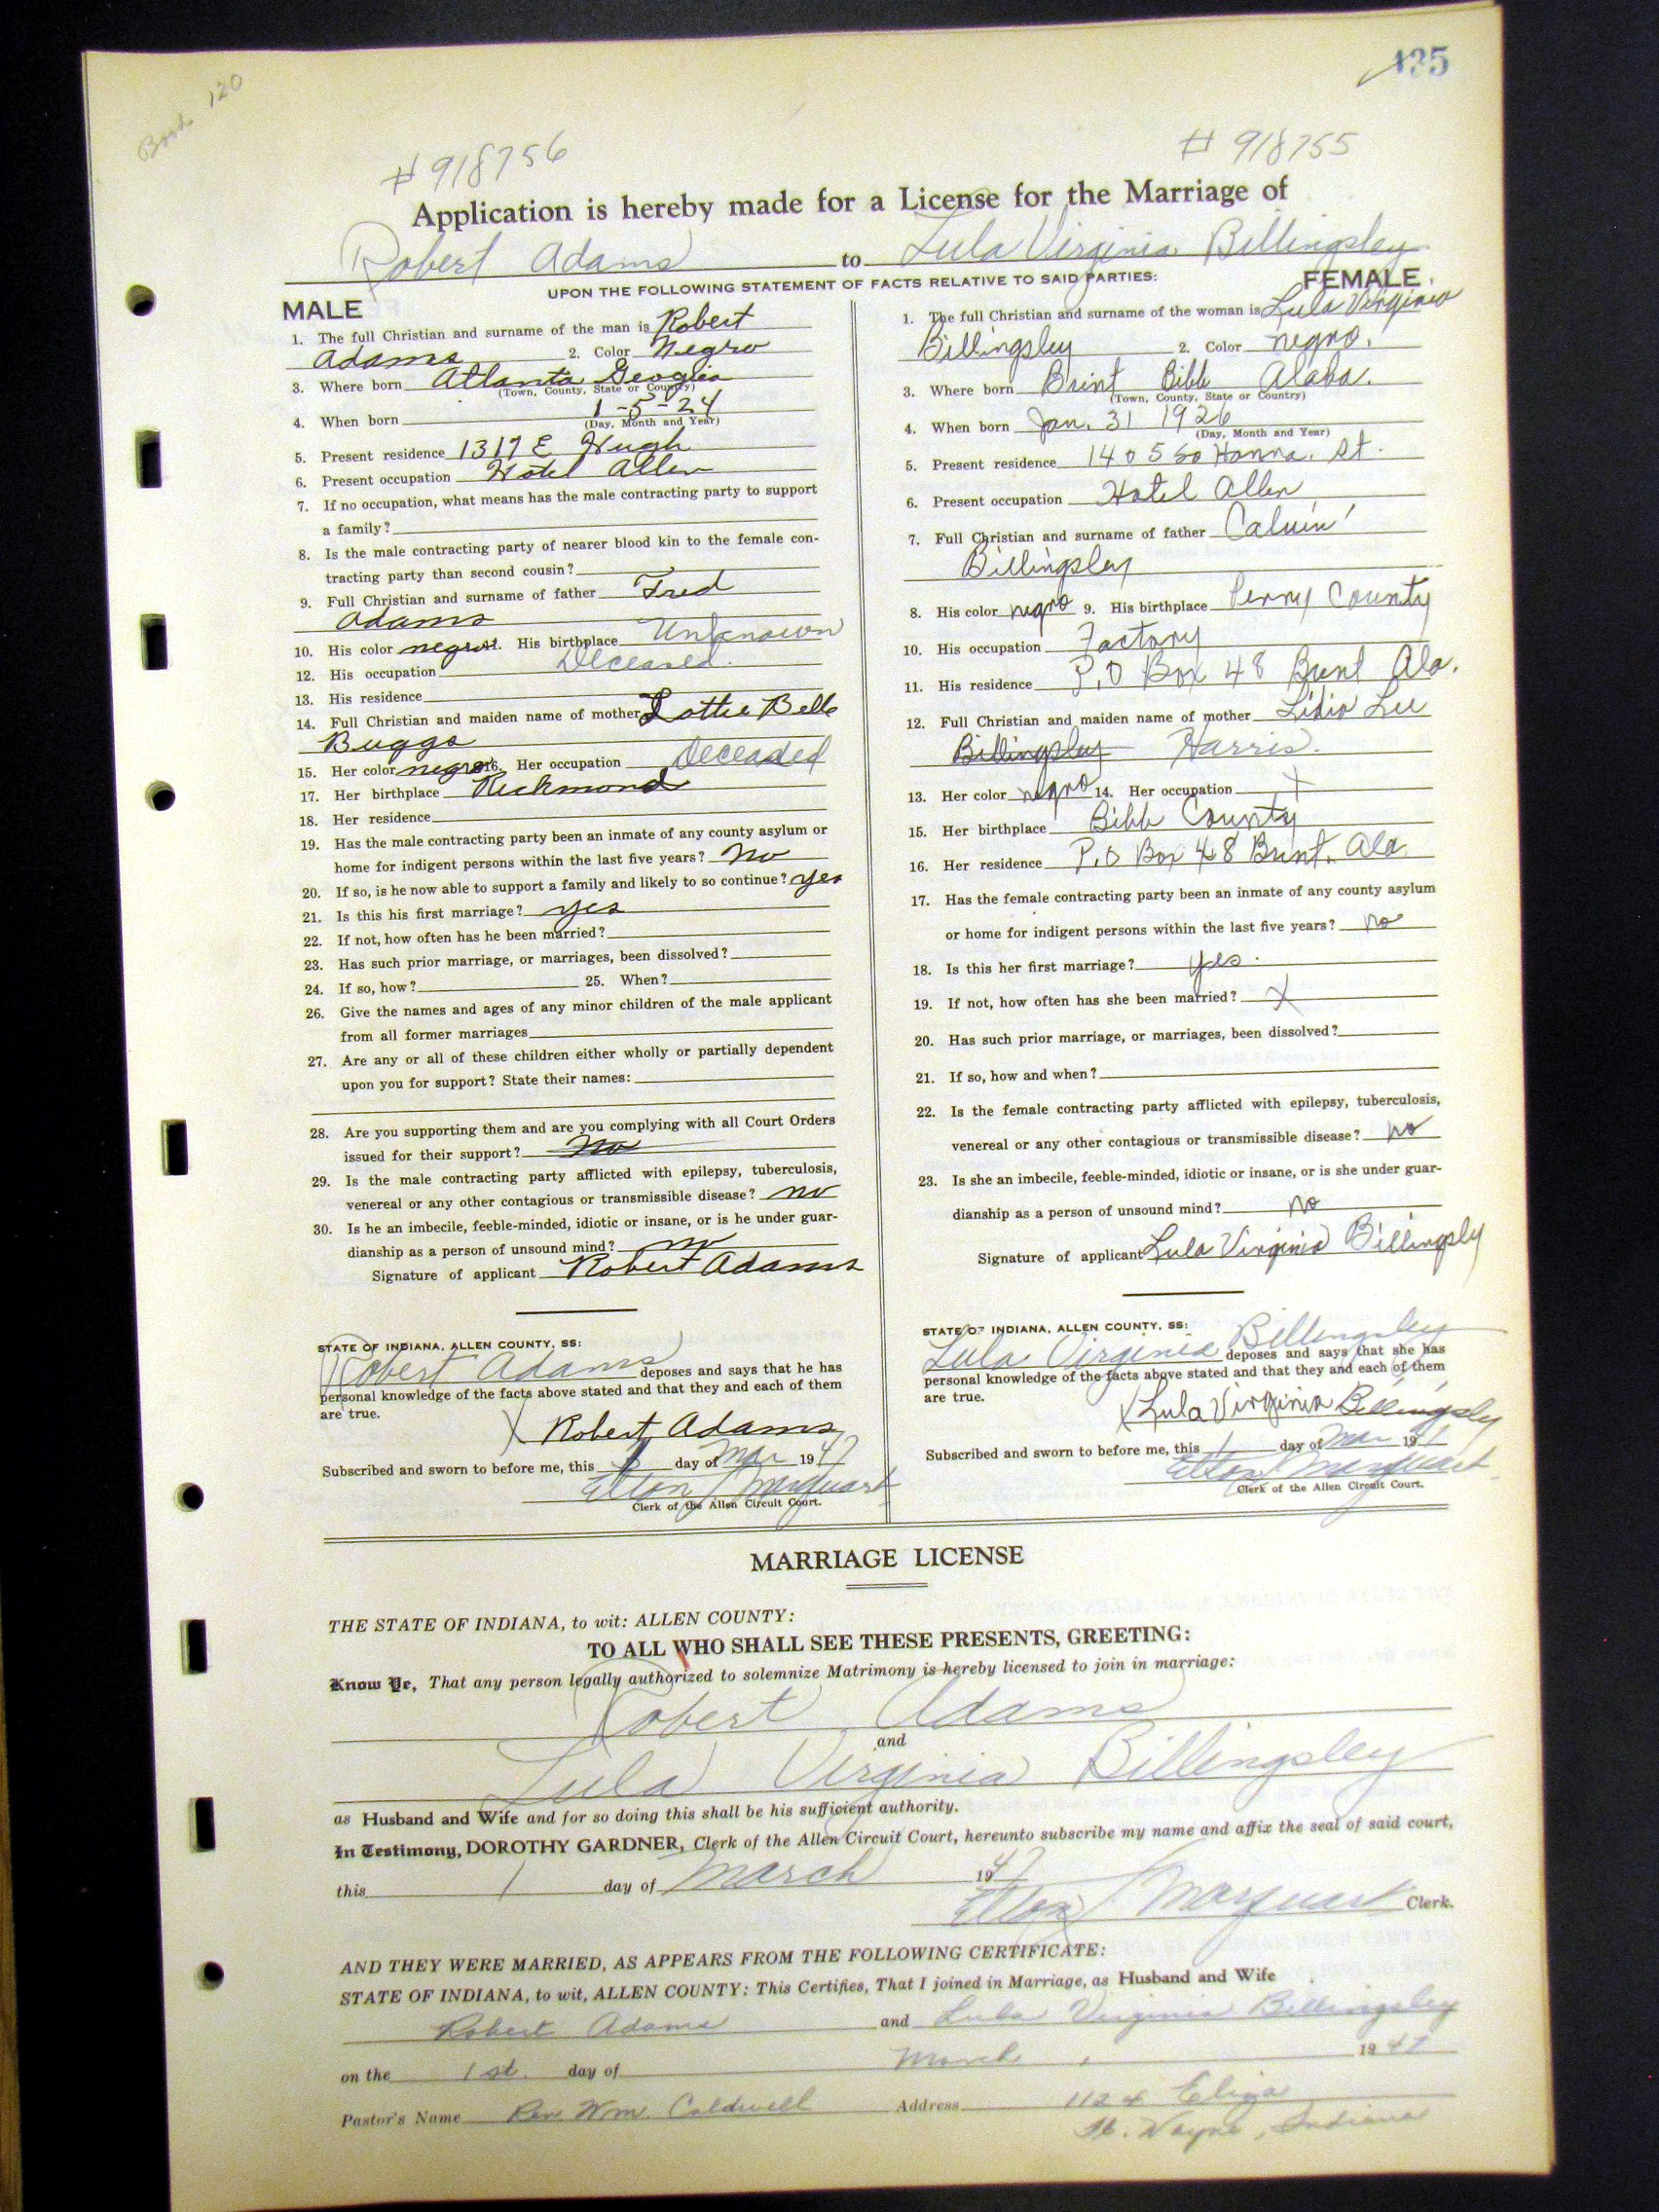 135
Book 120
# 918756
# 918755
Application is hereby made for a License for the Marriage of
Robert Adams to Lula Virginia Billingsley
UPON THE FOLLOWING STATEMENT OF FACTS RELATIVE TO SAID PARTIES:
MALE
1. The full Christian and surname of the man is Robert
Adams 2. Color Negro
3. Where born Atlanta Geogia
(Town, County, State or Country)
4. When born 1-5-24
(Day, Month and Year)
5. Present residence 1317 E Hugh
6. Present occupation Hotel Allen
7. If no occupation, what means has the male contracting party to support
a family?
8. Is the male contracting party of nearer blood kin to the female con-
tracting party than second cousin?
9. Full Christian and surname of father Fred
Adams
10. His color negro 11. His birthplace Unknown
12. His occupation Deceased.
13. His residence
14. Full Christian and maiden name of mother Lottie Belle
Buggs
15. Her color negro 16. Her occupation Deceased
17. Her birthplace Richmond
18. Her residence
19. Has the male contracting party been an inmate of any county asylum or
home for indigent persons within the last five years? No
20. If so, is he now able to support a family and likely to so continue? yes
21. Is this his first marriage? yes
22. If not, how often has he been married?
23. Has such prior marriage, or marriages, been dissolved?
24. If so, how? 25. When?
26. Give the names and ages of any minor children of the male applicant
from all former marriages
27. Are any or all of these children either wholly or partially dependent
upon you for support? State their names:
28. Are you supporting them and are you complying with all Court Orders
issued for their support? No
29. Is the male contracting party afflicted with epilepsy, tuberculosis,
venereal or any other contagious or transmissible disease? no
30. Is he an imbecile, feeble-minded, idiotic or insane, or is he under guar-
dianship as a person of unsound mind? no
Signature of applicant Robert Adams
STATE OF INDIANA, ALLEN COUNTY, SS:
Robert Adams deposes and says that he has
personal knowledge of the facts above stated and that they and each of them
are true.
X Robert Adams
Subscribed and sworn to before me, this 1 day of Mar 1947
Elton Marquart
Clerk of the Allen Circuit Court.
FEMALE
1. The full Christian and surname of the woman is Lula Virginia
Billingsley 2. Color negro.
3. Where born Brint Bibb Alaba.
(Town, County, State or Country)
4. When born Jan. 31 1926
(Day, Month and Year)
5. Present residence 1405 So Hanna. St.
6. Present occupation Hotel Allen
7. Full Christian and surname of father Calvin
Billingsley
8. His color negro 9. His birthplace Perry County
10. His occupation Factory
11. His residence P.O Box 48 Brint Ala.
12. Full Christian and maiden name of mother Lidia Lee
Billingsley Harris.
13. Her color negro 14. Her occupation X
15. Her birthplace Bibb County
16. Her residence P.O Box 48 Brint. Ala.
17. Has the female contracting party been an inmate of any county asylum
or home for indigent persons within the last five years? no
18. Is this her first marriage? yes.
19. If not, how often has she been married? X
20. Has such prior marriage, or marriages, been dissolved?
21. If so, how and when?
22. Is the female contracting party afflicted with epilepsy, tuberculosis,
venereal or any other contagious or transmissible disease? no
23. Is she an imbecile, feeble-minded, idiotic or insane, or is she under guar-
dianship as a person of unsound mind? no
Signature of applicant Lula Virginia Billingsly
STATE OF INDIANA, ALLEN COUNTY, SS:
Lula Virginia Billingsley deposes and says that she has
personal knowledge of the facts above stated and that they and each of them
are true.
X Lula Virginia Billingsley
Subscribed and sworn to before me, this 1 day of Mar 19
Elton Marquart
Clerk of the Allen Circuit Court.
MARRIAGE LICENSE
THE STATE OF INDIANA, to wit: ALLEN COUNTY:
TO ALL WHO SHALL SEE THESE PRESENTS, GREETING:
Know Ye, That any person legally authorized to solemnize Matrimony is hereby licensed to join in marriage:
Robert Adams
and
Lula Virginia Billingsley
as Husband and Wife and for so doing this shall be his sufficient authority.
In Testimony, DOROTHY GARDNER, Clerk of the Allen Circuit Court, hereunto subscribe my name and affix the seal of said court,
this 1 day of March 1947
Elton Marquart Clerk.
AND THEY WERE MARRIED, AS APPEARS FROM THE FOLLOWING CERTIFICATE:
STATE OF INDIANA, to wit, ALLEN COUNTY: This Certifies, That I joined in Marriage, as Husband and Wife
Robert Adams and Lula Virginia Billingsley
on the 1st. day of March, 1947
Pastor's Name Rev Wm. Caldwell Address 1124 Eliza
Ft. Wayne, Indiana